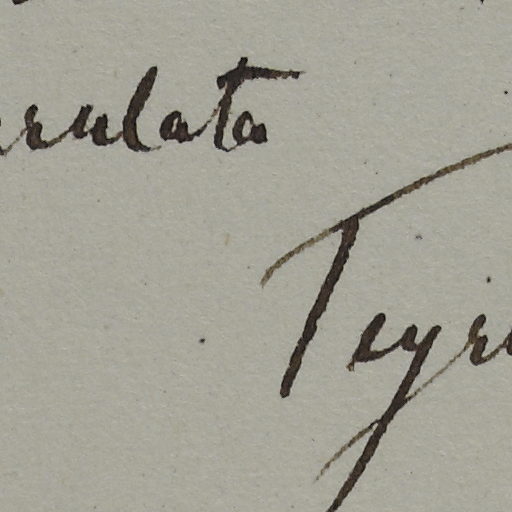 rulata
Teyr